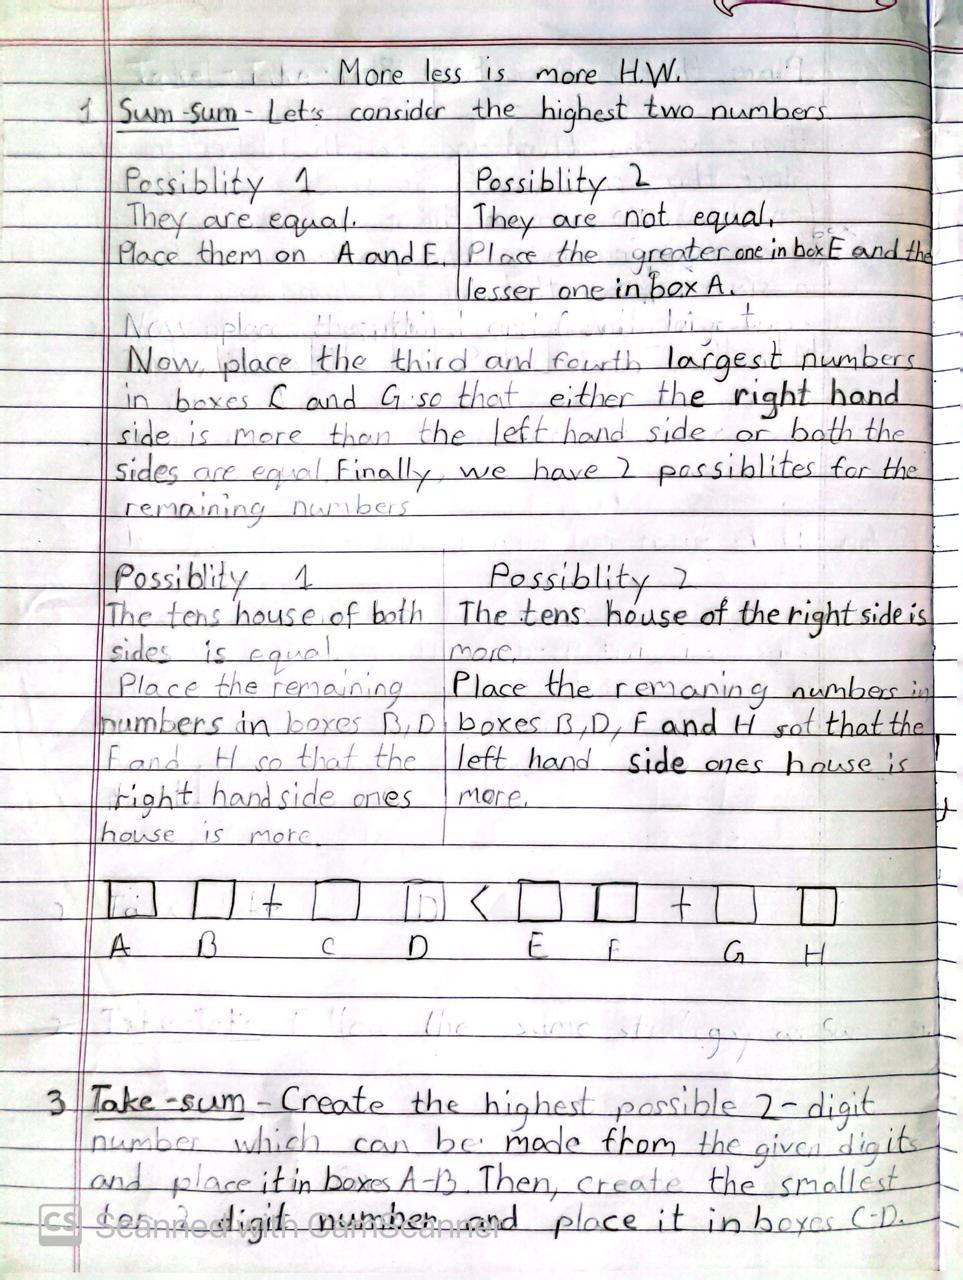 More less is more H.W.
1 Sum-sum - Let's consider the highest two numbers.
Possiblity 1
They are equal.
Place them on A and E.
Possiblity 2
They are not equal,
Place the greater one in box E and the
lesser one in box A.
Now, place the third and fourth largest numbers
in boxes C and G so that either the right hand
side is more than the left hand side or both the
sides are equal. Finally, we have 2 possiblites for the
remaining numbers
Possiblity 1
The tens house of both
sides is equal.
Place the remaining
numbers in boxes B, D
F and H so that the
right handside ones
house is more.
Possiblity 2
The tens house of the right side is
more.
Place the remaning numbers in
boxes B, D, F and H sot that the
left hand side ones house is
more.
+ < +
A B C D E F G H
3 Take-sum - Create the highest possible 2-digit
number which can be made from the given digits
and place it in boxes A-B. Then, create the smallest
digit number and place it in boxes C-D.
CS Scanned with CamScanner